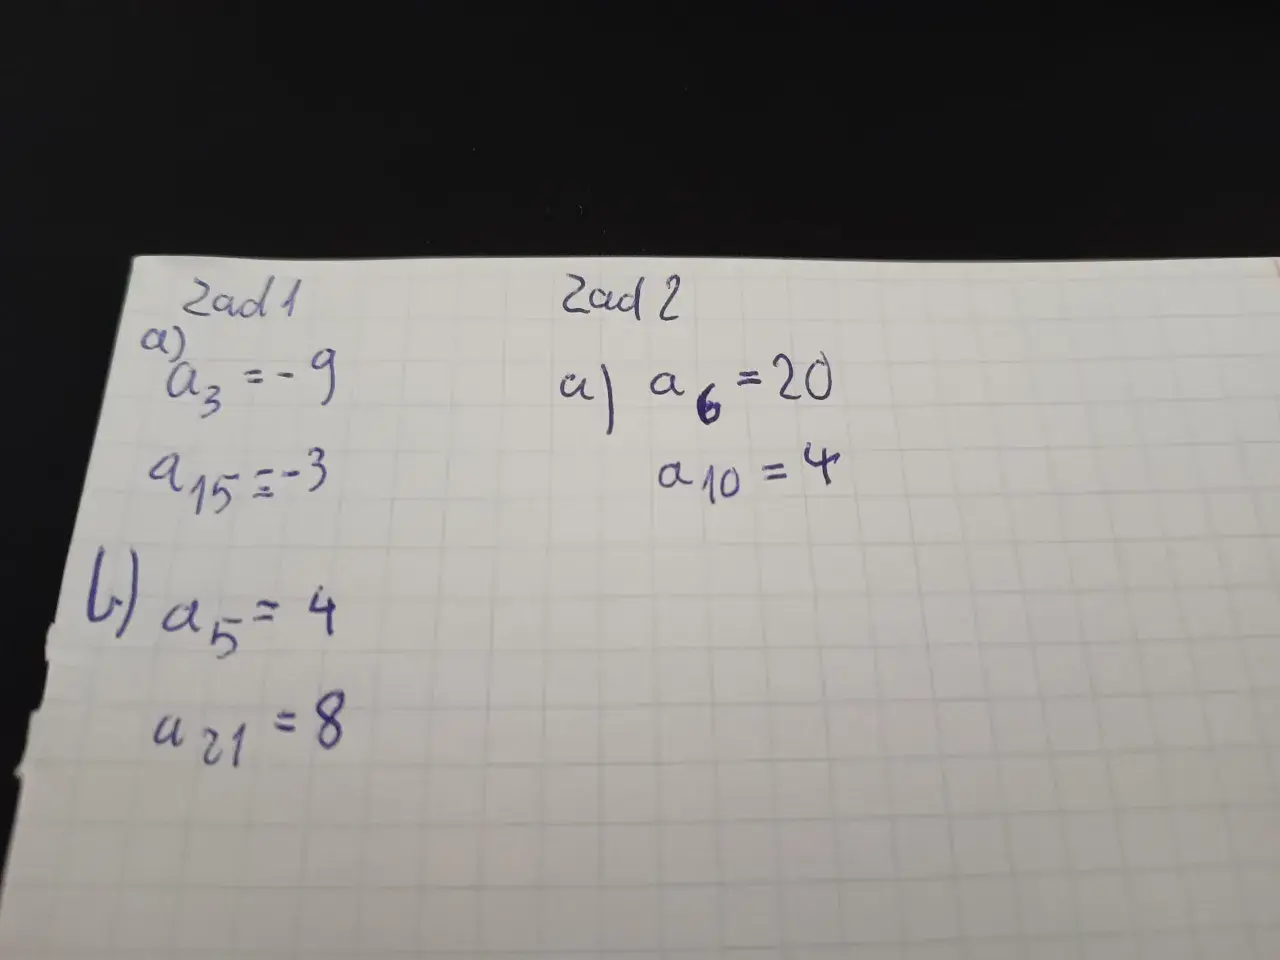 Zad 1
a)
a₃ = -9
a₁₅ = -3
b) a₅ = 4
a₂₁ = 8
Zad 2
a) a₆ = 20
a₁₀ = 4